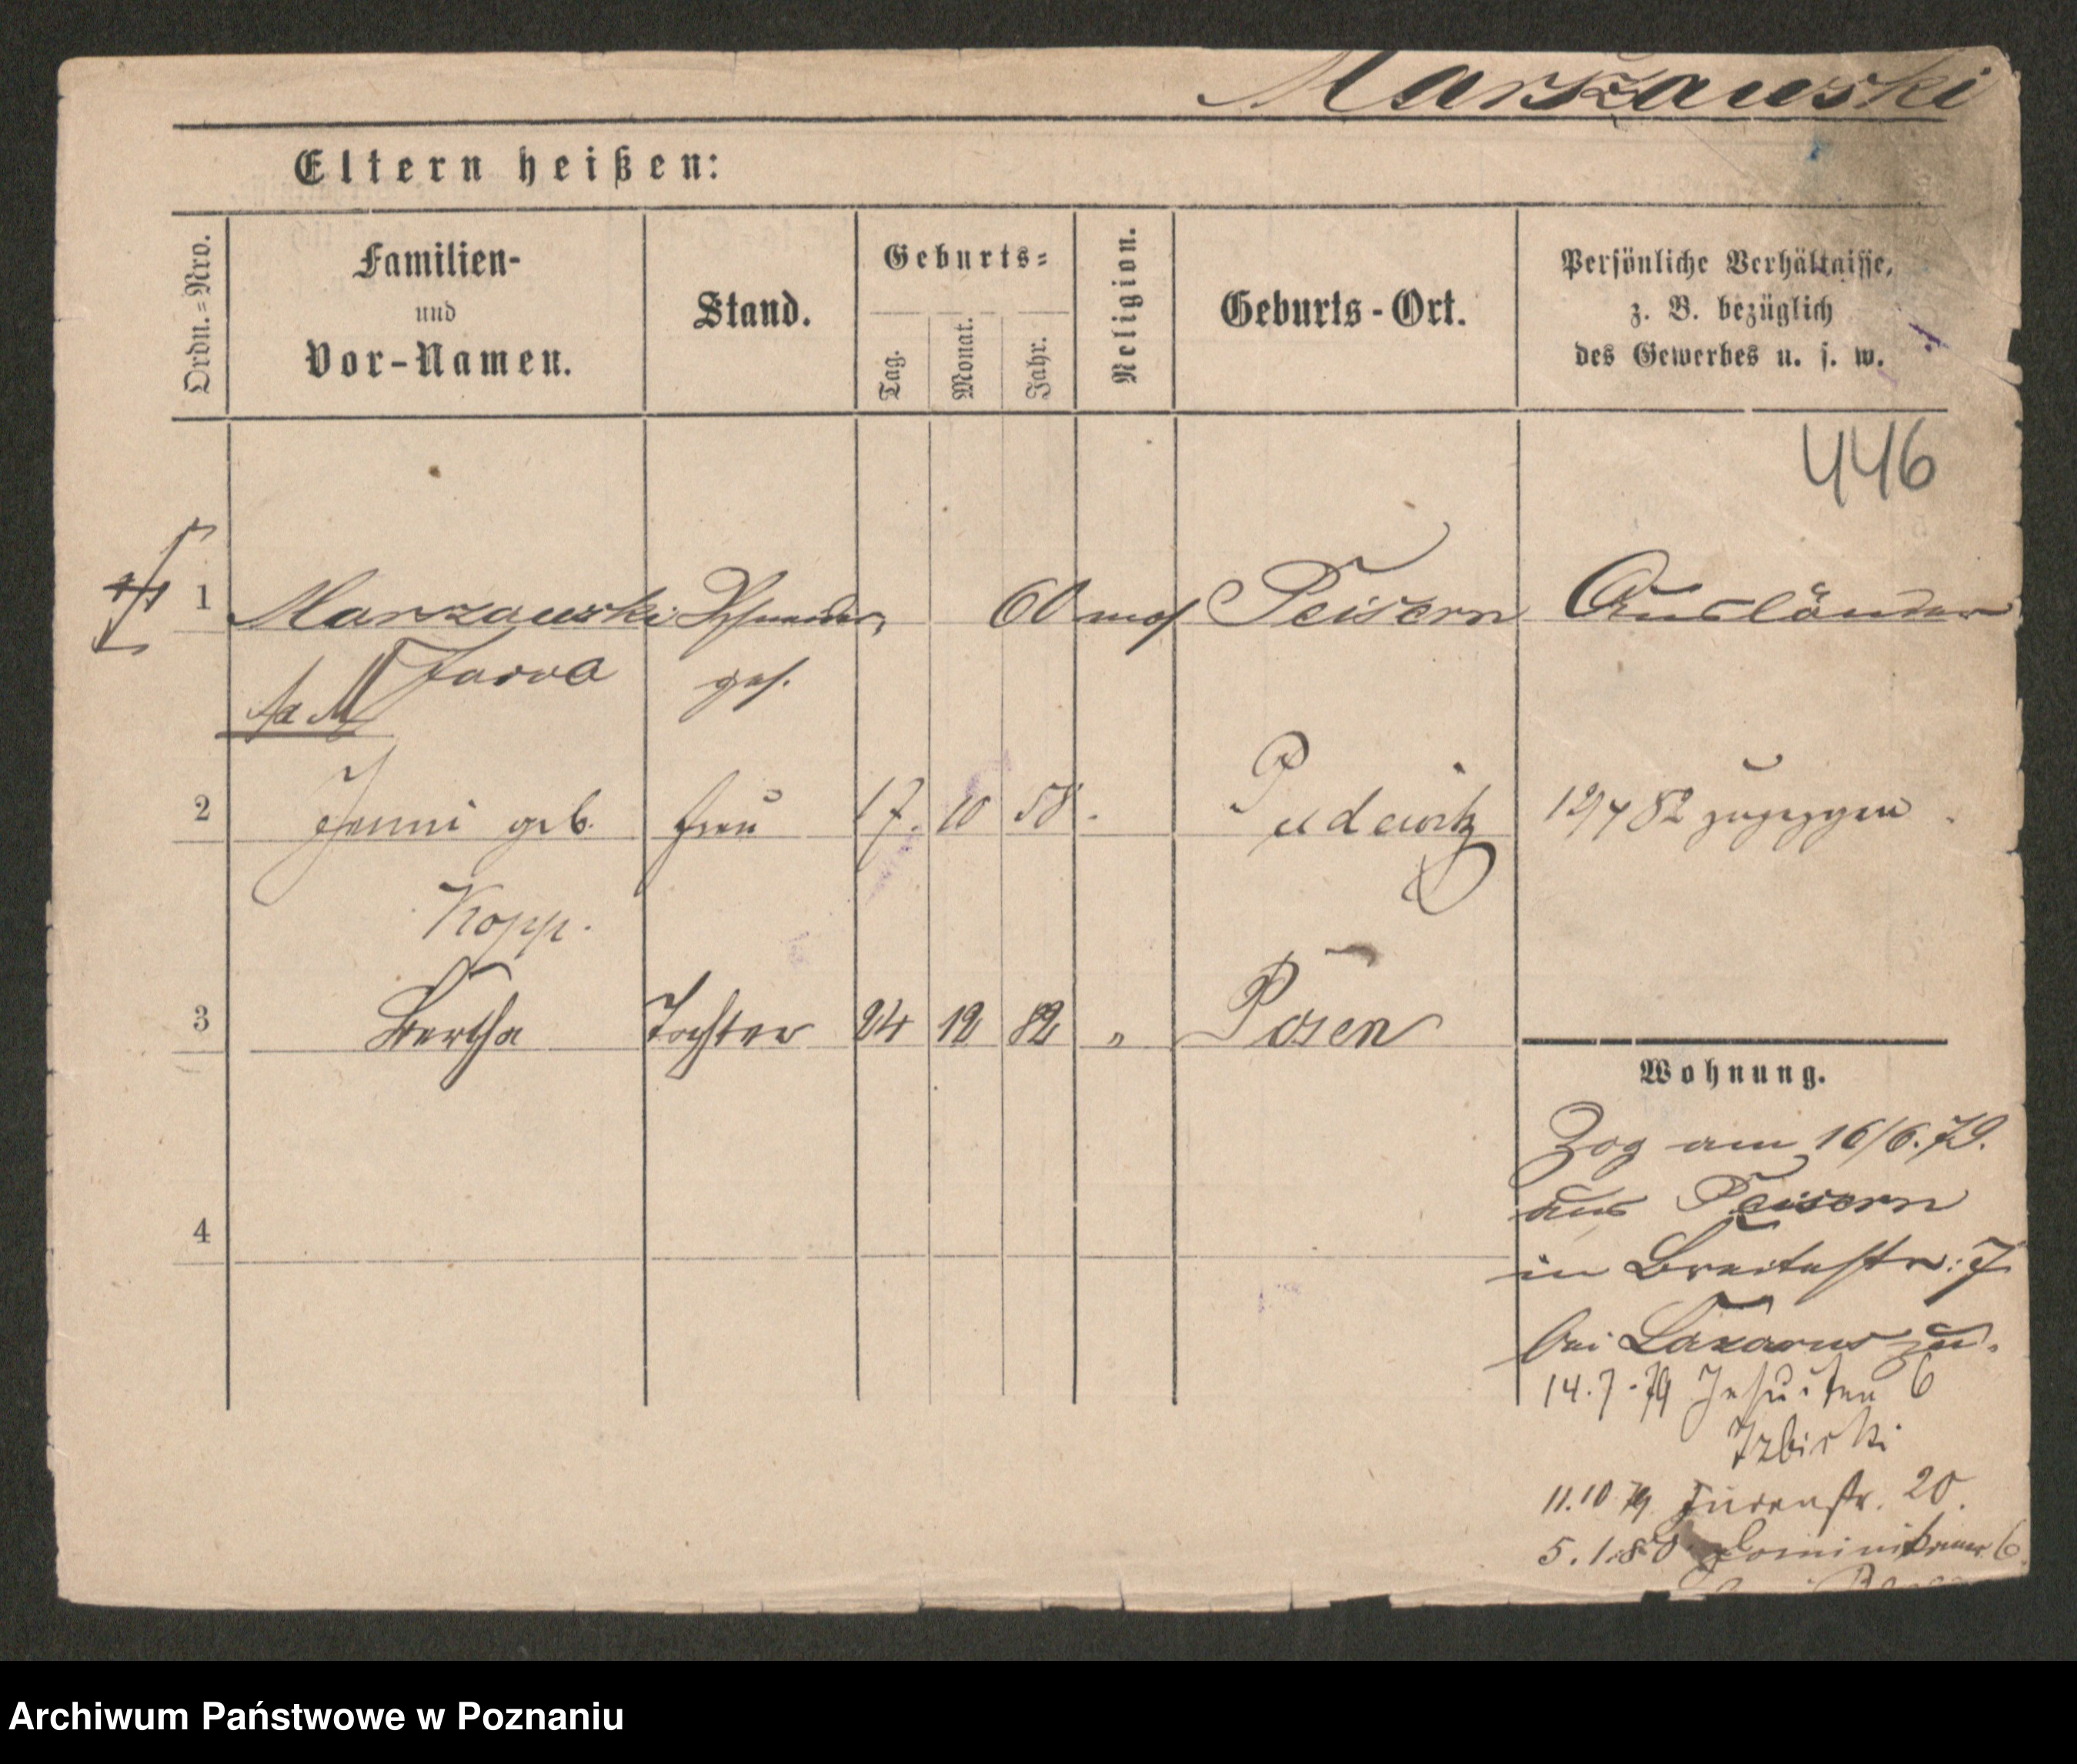 Marszawski
Eltern heißen:
Ordn.=Nro.
Familien-
und
Vor-Namen.
Stand.
Geburts=
Tag.
Monat.
Jahr.
Religion.
Geburts-Ort.
Persönliche Verhältnisse,
z. B. bezüglich
des Gewerbes u. s. w.
446
1 Marszawski Schneider 60 mos Peisern Ausländer
ges.
2 Jenni geb. Frau 17. 10 58. Pudewitz 12/4 82 zugezogen
Kopp.
3 Bertha Tochter 24 12 82 " Posen
Wohnung.
Zog am 16/6.79.
aus Peisern
in Breitestr: 7
bei Lazarus zu.
14.7.79 Jesuiten 6
Izbicki
11.10 79. Judenstr. 20.
5.1.80 Dominikaner 6
4
Archiwum Państwowe w Poznaniu